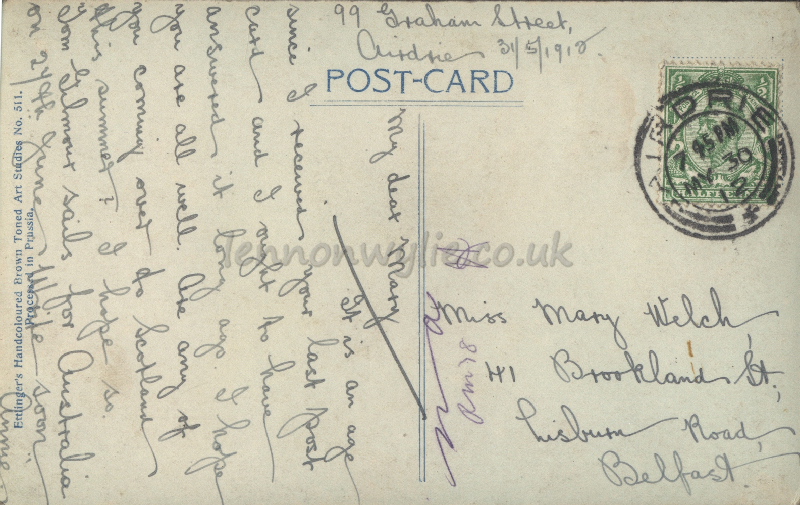 99 Graham Street,
Airdrie 31/5/1912.
POST-CARD
My dear Mary
It is an age
since I received your last post
card and I ought to have
answered it long ago. I hope
you are all well. Are any of
you coming over to Scotland
this summer? I hope so.
Tom Gilmour sails for Australia
on 27th June. Write soon
Annie
Ettlinger's Handcoloured Brown Toned Art Studies No. 511.
Processed in Prussia.
AIRDRIE
7 45 PM
MY 30
12
Miss Mary Welch,
41 Brookland St,
Lisburn Road,
Belfast.
Lennonwylie.co.uk